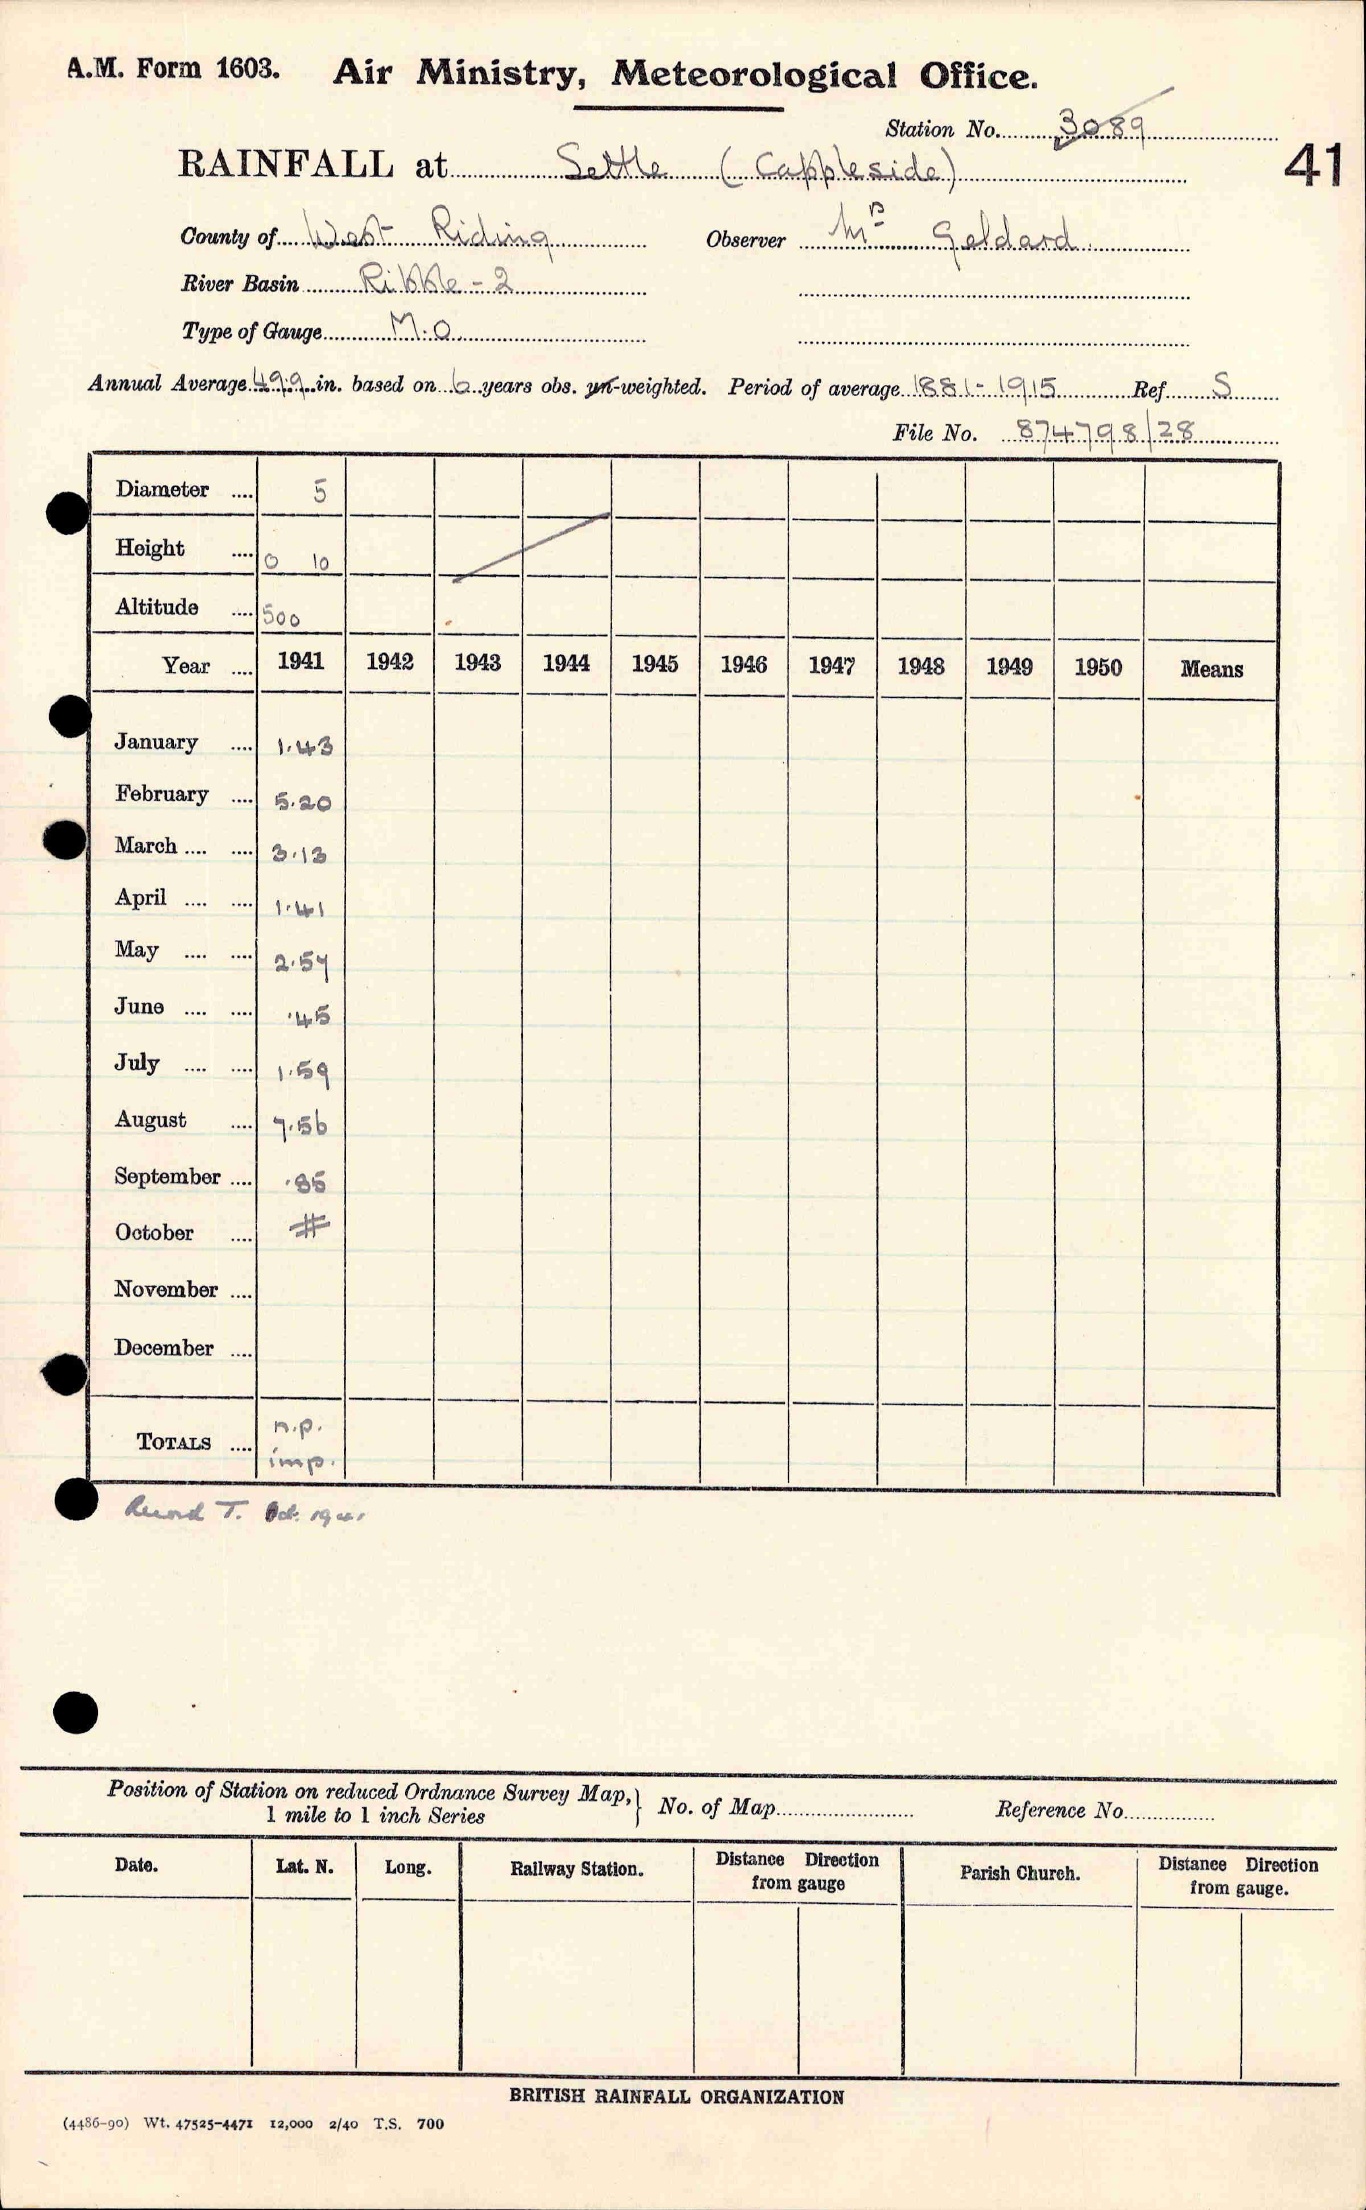 A.M. Form 1603. Air Ministry, Meteorological Office.
Station No. 3089
41
RAINFALL at Settle (Cappleside)
County of West Riding Observer Mr Geldard
River Basin Ribble - 2
Type of Gauge M.O.
Annual Average 49.9 in. based on 6 years obs. un-weighted. Period of average 1881-1915 Ref S
File No. 874798/28
Diameter .... 5
Height .... 0 10
Altitude .... 500
Year .... 1941 1942 1943 1944 1945 1946 1947 1948 1949 1950 Means
January .... 1.43
February .... 5.20
March .... .... 3.13
April .... .... 1.41
May .... .... 2.57
June .... .... .45
July .... .... 1.59
August .... 7.56
September .... .85
October .... #
November ....
December ....
TOTALS .... n.p.
imp.
Record T. Oct. 1941
Position of Station on reduced Ordnance Survey Map, } No. of Map Reference No.
1 mile to 1 inch Series
Date. Lat. N. Long. Railway Station. Distance Direction from gauge Parish Church. Distance Direction from gauge.
BRITISH RAINFALL ORGANIZATION
(4486-90) Wt. 47525-4471 12,000 2/40 T.S. 700